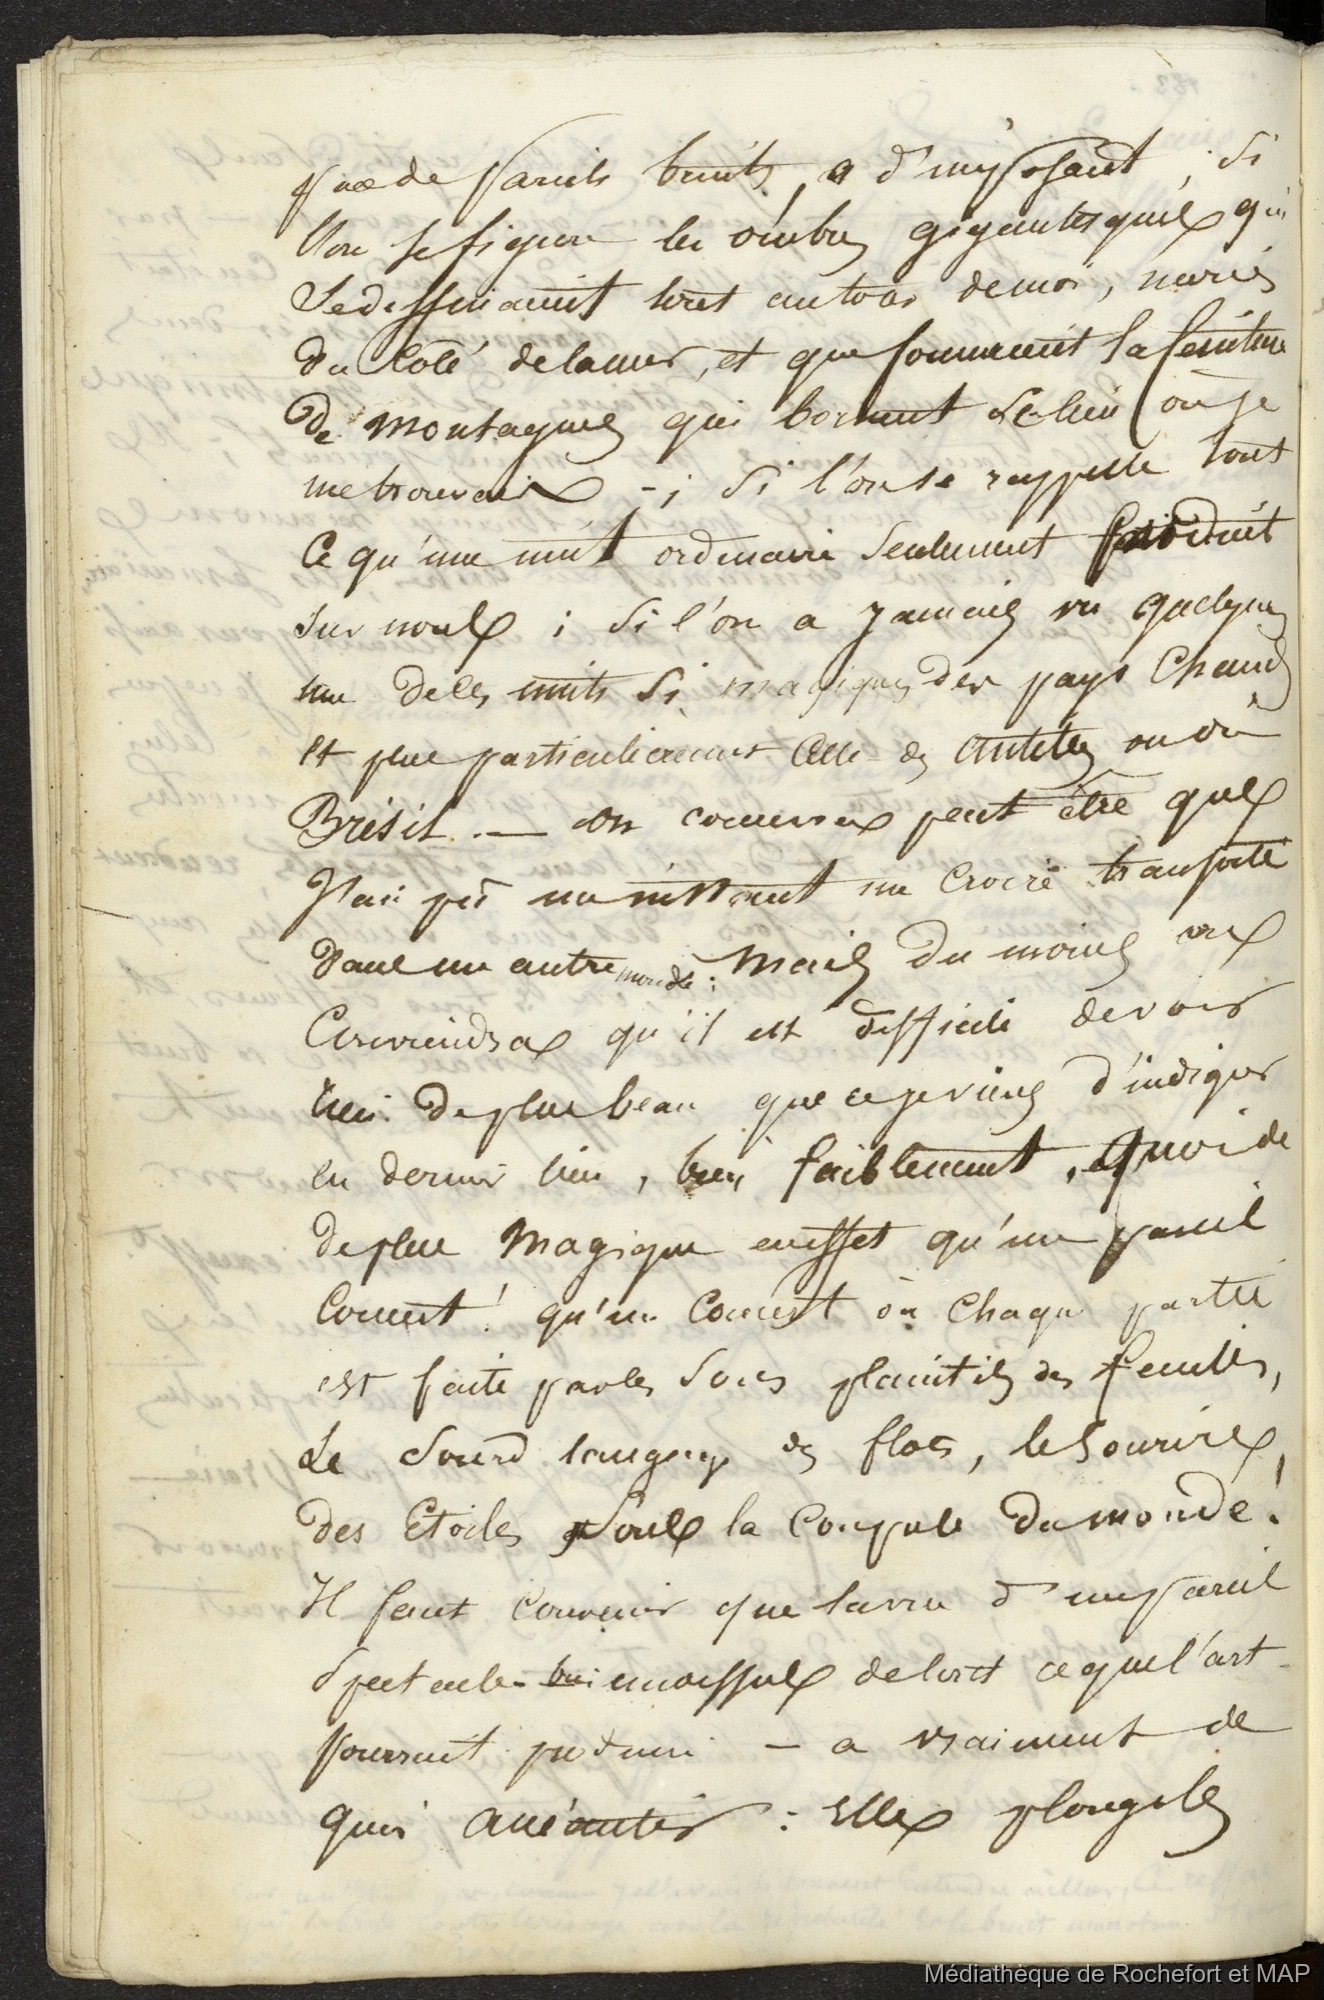 que de pareils bruits, a d'imposant ; si
l'on se figure les ombres gigantesques qui
se dessinaient tout autour de moi,
du côté de la mer, et que formaient la ceinture
de montagnes qui bornent le lieu où je
me trouvais - ; si l'on se rappelle tout
ce qu'une nuit ordinaire seulement produit
sur nous ; si l'on a jamais vu quelques
une de ces nuits si magiques des pays chauds
et plus particulièrement celle des Antilles ou du
Brésil. — on concevra peut être que
j'ai pû un instant me croire transporté
dans un autre monde : mais du moins on
conviendra qu'il est difficile de voir
rien de plus beau que ce je viens d'indiquer
en dernier lieu, bien faiblement, quoi de
de plus magique en effet qu'un pareil
concert ! qu'un concert où chaque partie
est faite par les sons plaintifs des feuilles,
le sourd langage des flots, le sourire,
des Etoiles sous la coupole du monde !
Il faut convenir que la vue d'un pareil
spectacle - au dessus de tout ce que l'art -
pourrait produire - a vraiment de
quoi anéantir : Elle plonge les
Médiathèque de Rochefort et MAP